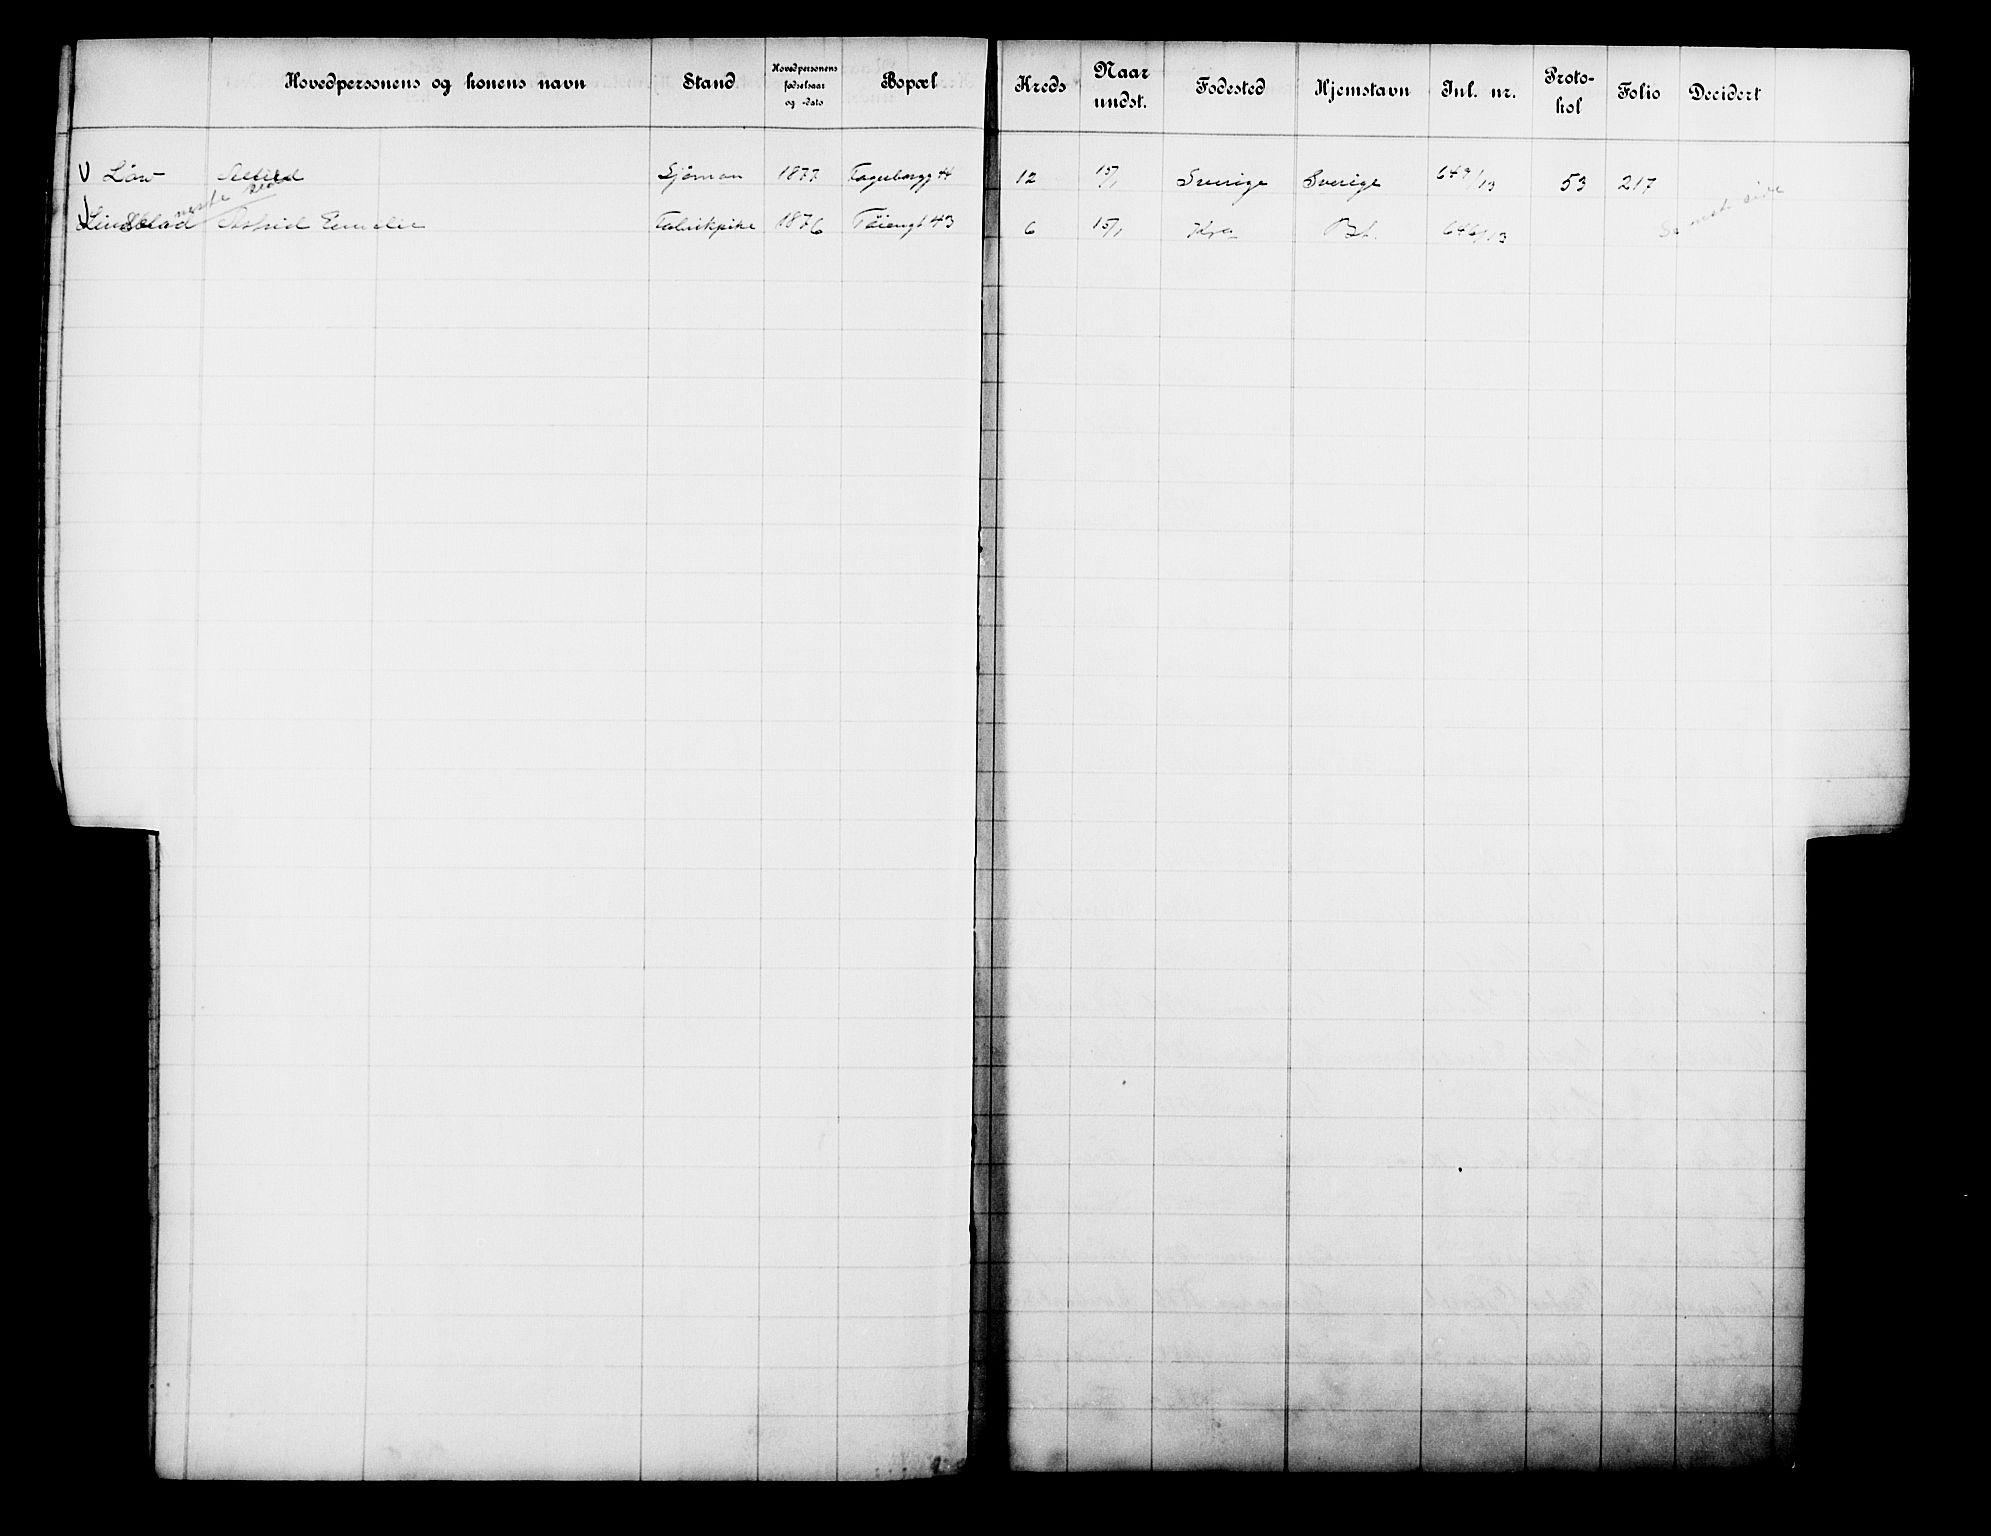 Hovedpersonens og konens navn Stand Hovedpersonens fødselsaar og -dato Bopæl Kreds Naar undst. Fødested Hjemstavn Inl. nr. Protokol Folio Decidert
V Löw Sjöman 1877 Fagerborgg 4 12 15/1 Sverige Sverige 649/13 53 217
neste side
V Lindblad Astrid Emilie Fabrikpike 1876 Töiengt 43 6 15/1 Kra 646/13
neste side